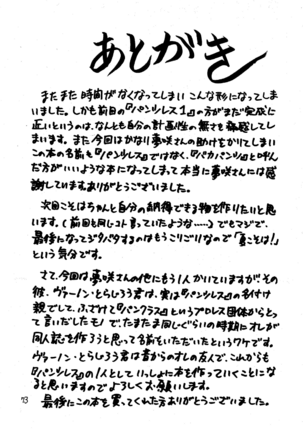 あとがき
またまた時間がなくなってしまいこんな形になってしま
いました。しかも前回の『パンツレス1』の方がまだ完成に
近いというのは、なんとも自分の計画性の無さを痛感してし
まいます。また今回はかなり夢咲さんの助けをかりてしまい
この本の名前も『パンツレス』ではなく、『パカパンツ』と呼ん
だ方がいいような本になってしまって本当に夢咲さんには感
謝していますありがとうございました。
次回こそはちゃんと自分の納得できる物を作りたいと思
います。(前回も同じコト言っていたような……)でもマジで、
最後になってジタバタするのはもうこりごりなので「夏こそは!」
という気分です。
さて、今回は夢咲さんの他にもう1人かいていますがその
彼、ヴァーノン・とらじろう君は、実は『パンツレス』の名付け
親でして、ふざけて『パンクラス』というプロレス団体からとっ
て言いだしたモノで、たまたま同じぐらいの時期にオレが
同人誌を作ろうと思って名前をいただいたというワケです。
ヴァーノン・とらじろう君は昔からのオレの友人で、これからも
『パンツレス』の1人としていっしょに本を作っていくことにな
ると思いますのでよろしくお願いします。
最後にこの本を買ってくれた方ありがとうございました。
73